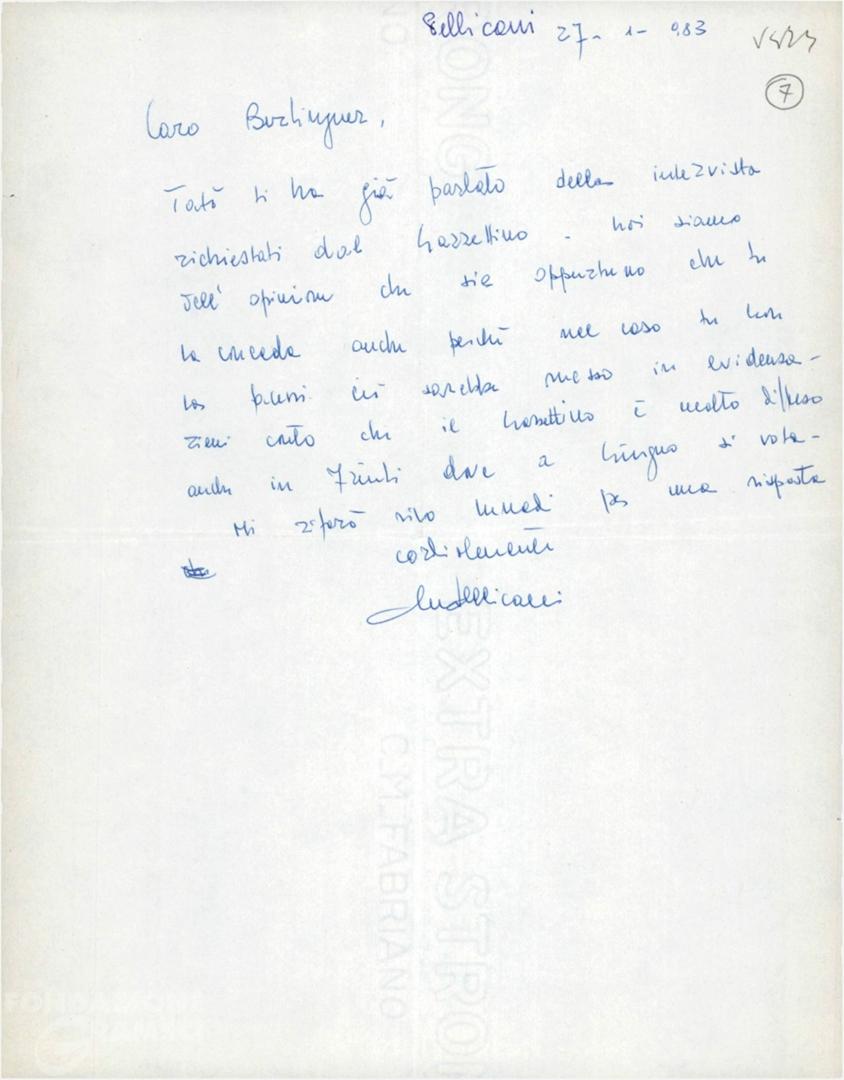 Pellicani 27-1-983
7
Caro Berlinguer,
Tatò ti ha già parlato della intervista
richiestati dal Gazzettino. Noi siamo
dell'opinione che sia opportuno che tu
la conceda anche perché nel caso tu non
la facessi ciò sarebbe messo in evidenza -
tieni conto che il Gazzettino è molto diffuso
anche in Friuli dove a Giugno si vota -
Mi rifarò vivo lunedì per una risposta
cordialmente
Pellicani
EXTRA STRO
C.M. FABRIANO
FONDAZIONE
GRAMSCI